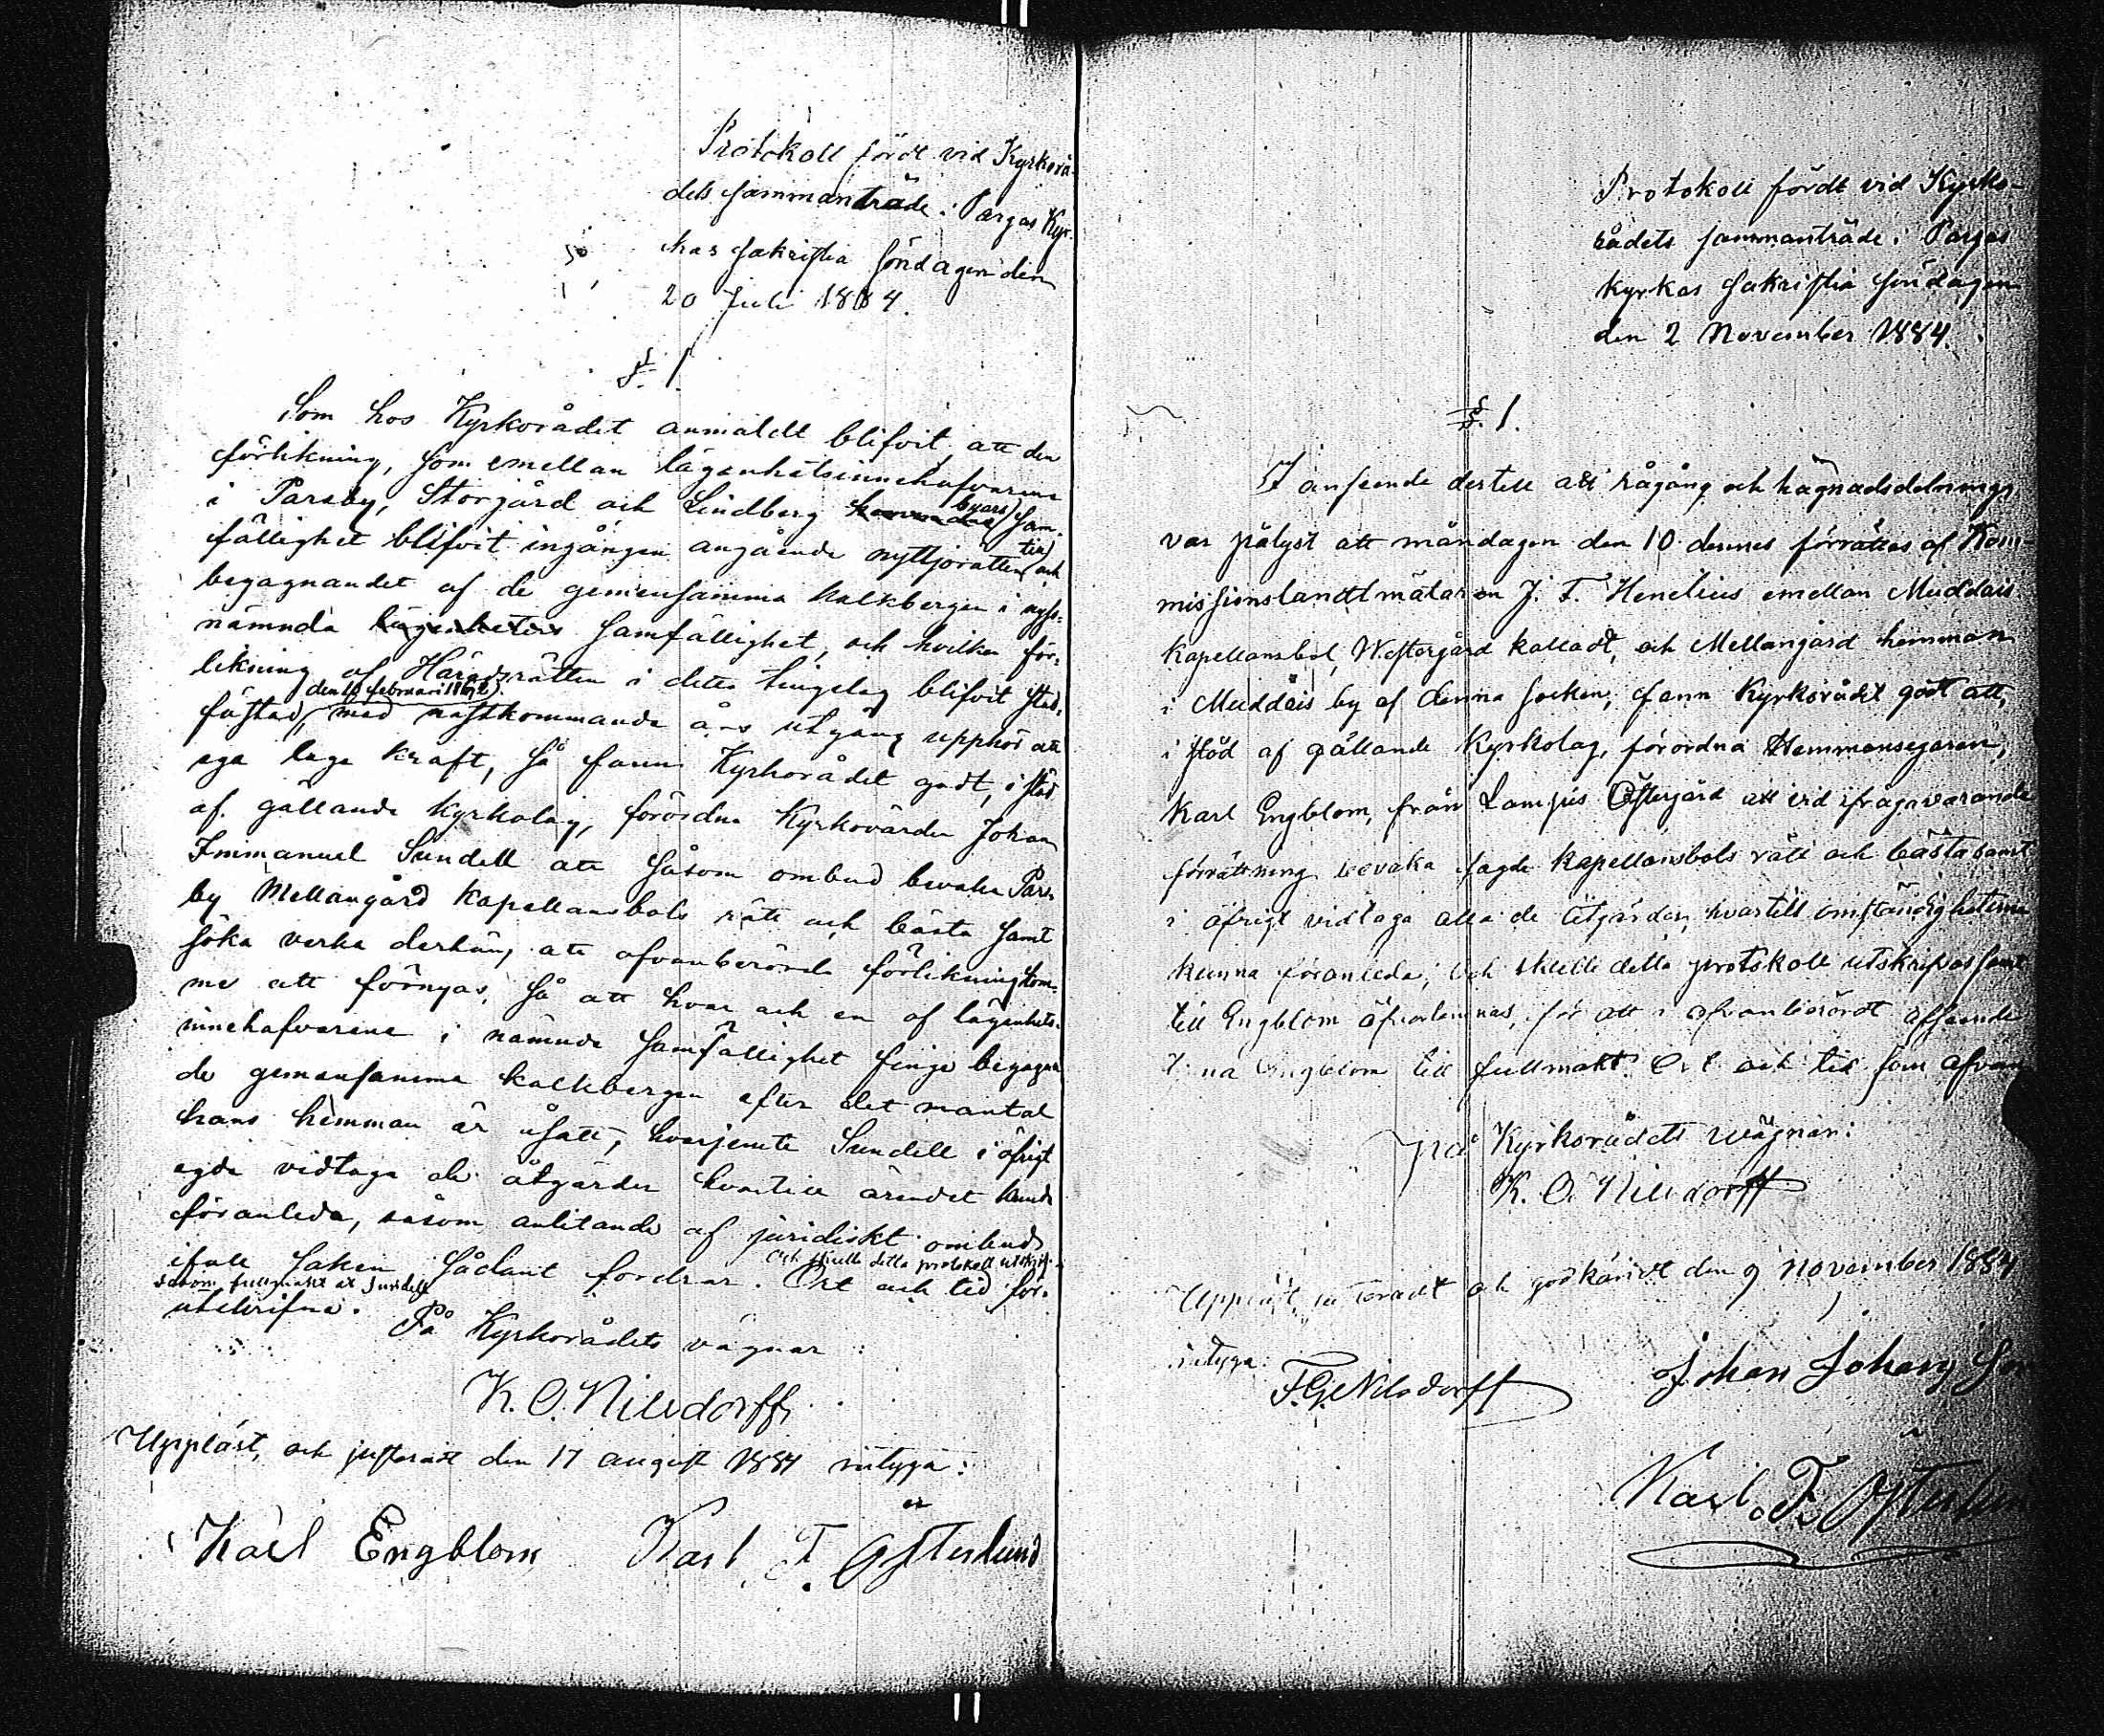 Protokoll fördt vid Kyrkorå-
dets sammanträde i Pargas Kyr-
kas sakristia söndagen den
20 Juli 1884.
§. 1.
Som hos Kyrkorådet anmäldt blifvit, att den
förlikning, som emellan lägenhetsinnehafvarene
i Parsby, Storgård och Lindberg byars sam-
fällighet blifvit ingången angående nyttjorätten till och
begagnandet af de gemensamma kalkbergen i nyss-
nämnda lägenheters samfällighet, och hvilken för-
likning af Häradsrätten i detta tingslag blifvit stad-
fästad, den 10 februari 1862, med nästkommande års utgång upphör att
ega laga kraft, så fann Kyrkorådet godt, i stöd
af gällande kyrkolag, förordna Kyrkovärden Johan
Immanuel Sundell att såsom ombud bevaka Pars-
by Mellangård Kapellansbols rätt och bästa samt
söka verka derhän, att ofvanberörde förlikning kom-
me att förnyas, så att hvar och en af lägenhets-
innehafvarene i nämnde samfällighet finge begagna
de gemensamma kalkbergen efter det mantal
hans hemman är åsatt, hvarjemte Sundell i öfrigt
egde vidtaga de åtgärder hvartill ärendet kunde
föranleda, såsom anlitande af juridiskt ombud
ifall saken sådant fordrar. Och skulle detta protokoll utskrif-
såsom fullmakt åt Sundell Ort och tid för-
utskrifne.
På Kyrkorådets vägnar:
K. O. Nilsdorff
Uppläst, och justeradt den 17 august 1884 intyga:
Karl Engblom Karl F. Österlund
Protokoll fördt vid Kyrko-
rådets sammanträde i Pargas
kyrkas sakristia söndagen
den 2 November 1884.
§. 1.
I anseende dertill att rågång och hägnadsdelnings
var pålyst att måndagen den 10 dennes förrättas af Kom-
missionslandtmätaren J. F. Henelius emellan Muddais
Kapellansbol, Westergård kalladt, och Mellangård hemman
i Muddais by af denna socken, fann Kyrkorådet godt att,
i stöd af gällande Kyrkolag, förordna Hemmansegaren,
Karl Engblom, från Lampis Östergård att vid ifrågavarande
förrättning bevaka sagde Kapellansbols rätt och bästa samt
i öfrigt vidtaga alla de åtgärder, hvartill omständigheterna
kunna föranleda; Och skulle detta protokoll utskrifvas samt
till Engblom öfverlemnas, för att i ofvanberördt afseende
tjena Engblom till fullmakt. Ort och tid som ofvan
på Kyrkorådets wägnar:
K. O. Nilsdorff
Uppläst, justeradt och godkändt den 9 November 1884
intyga:
F. G. Nilsdorff Johan Johans Son
Karl F. Österlun